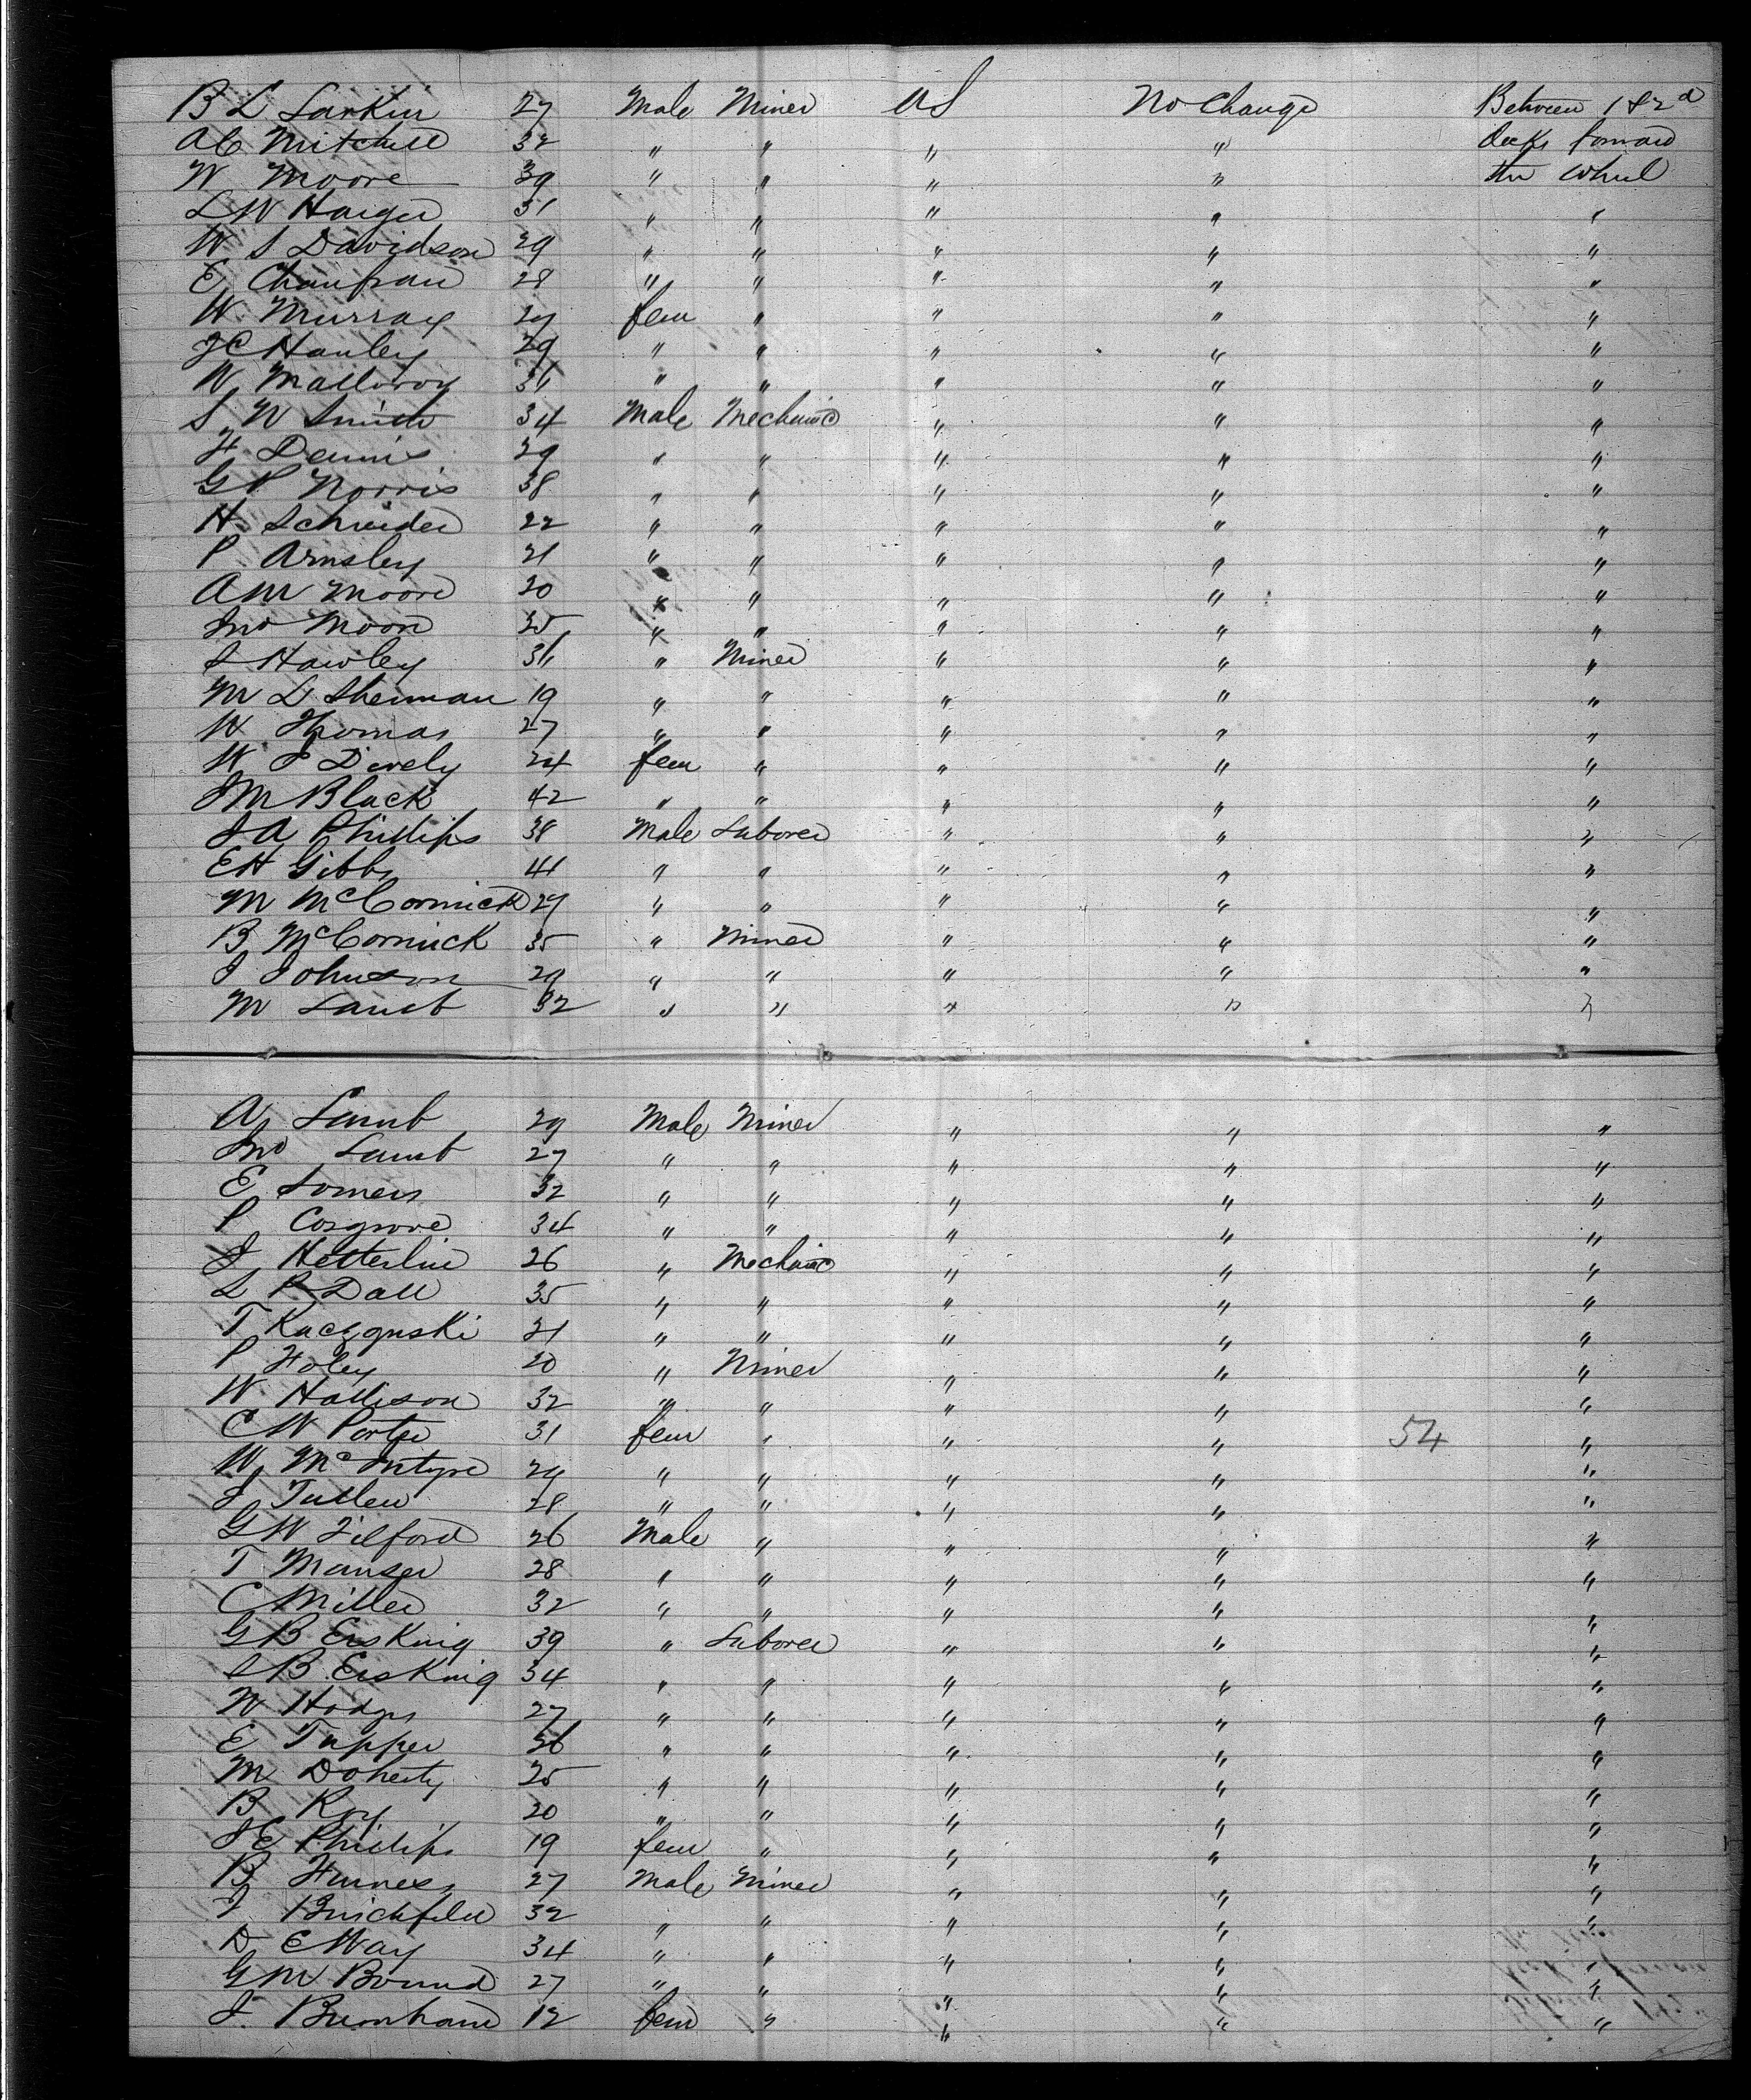 B L Larkin 27 Male Miner US No Change Between 1 & 2d
A C Mitchell 32 " " " " decks forward
W Moore 39 " " " " the wheel
L W Haiger 31 " " " " "
W S Davidson 29 " " " " "
E 28 " " " " "
W Murray 27 fem " " " "
J C Hanley 29 " " " " "
W Malloroy 31 " " " " "
S W Smith 34 Male Mechanic " " "
H Dennis 29 " " " " "
G P Norris 38 " " " " "
H Schneider 22 " " " " "
P Arnsley 21 " " " " "
A M Moore 20 " " " " "
Jno Moon 25 " " " " "
S Hawley 36 " Miner " " "
M L Sherman 19 " " " " "
W Thomas 27 " " " " "
W J Dively 24 fem " " " "
J M Black 42 " " " " "
J A Phillips 38 Male Laborer " " "
E H Gibbs 41 " " " " "
M McCormick 27 " " " " "
B McCormick 35 " Miner " " "
J Johnson 29 " " " " "
M Lamb 32 " " " " "
A Lamb 29 Male Miner " " "
Jno Lamb 27 " " " " "
E Somers 32 " " " " "
P Cosgrove 34 " " " " "
J Hetterlin 26 " Mechanic " " "
L P Dall 35 " " " " "
T Kaczynski 21 " " " " "
P Foley 20 " Miner " " "
W Hallison 32 " " " " "
C W Porter 31 fem " " " 54 "
W McIntyre 29 " " " " "
J Tullen 28 " " " " "
G W Tilford 26 Male " " " "
T Manser 28 " " " " "
C Miller 32 " " " " "
G B Ersking 39 " Laborer " " "
C B Ersking 34 " " " " "
W Hodges 27 " " " " "
E Tupper 36 " " " " "
M Doherty 25 " " " " "
B Roy 20 " " " " "
J E Phillips 19 fem " " " "
B Furness 27 Male Miner " " "
J 32 " " " " "
D C Way 34 " " " " "
G M Bound 27 " " " " "
J. Burnham 12 fem " " " "